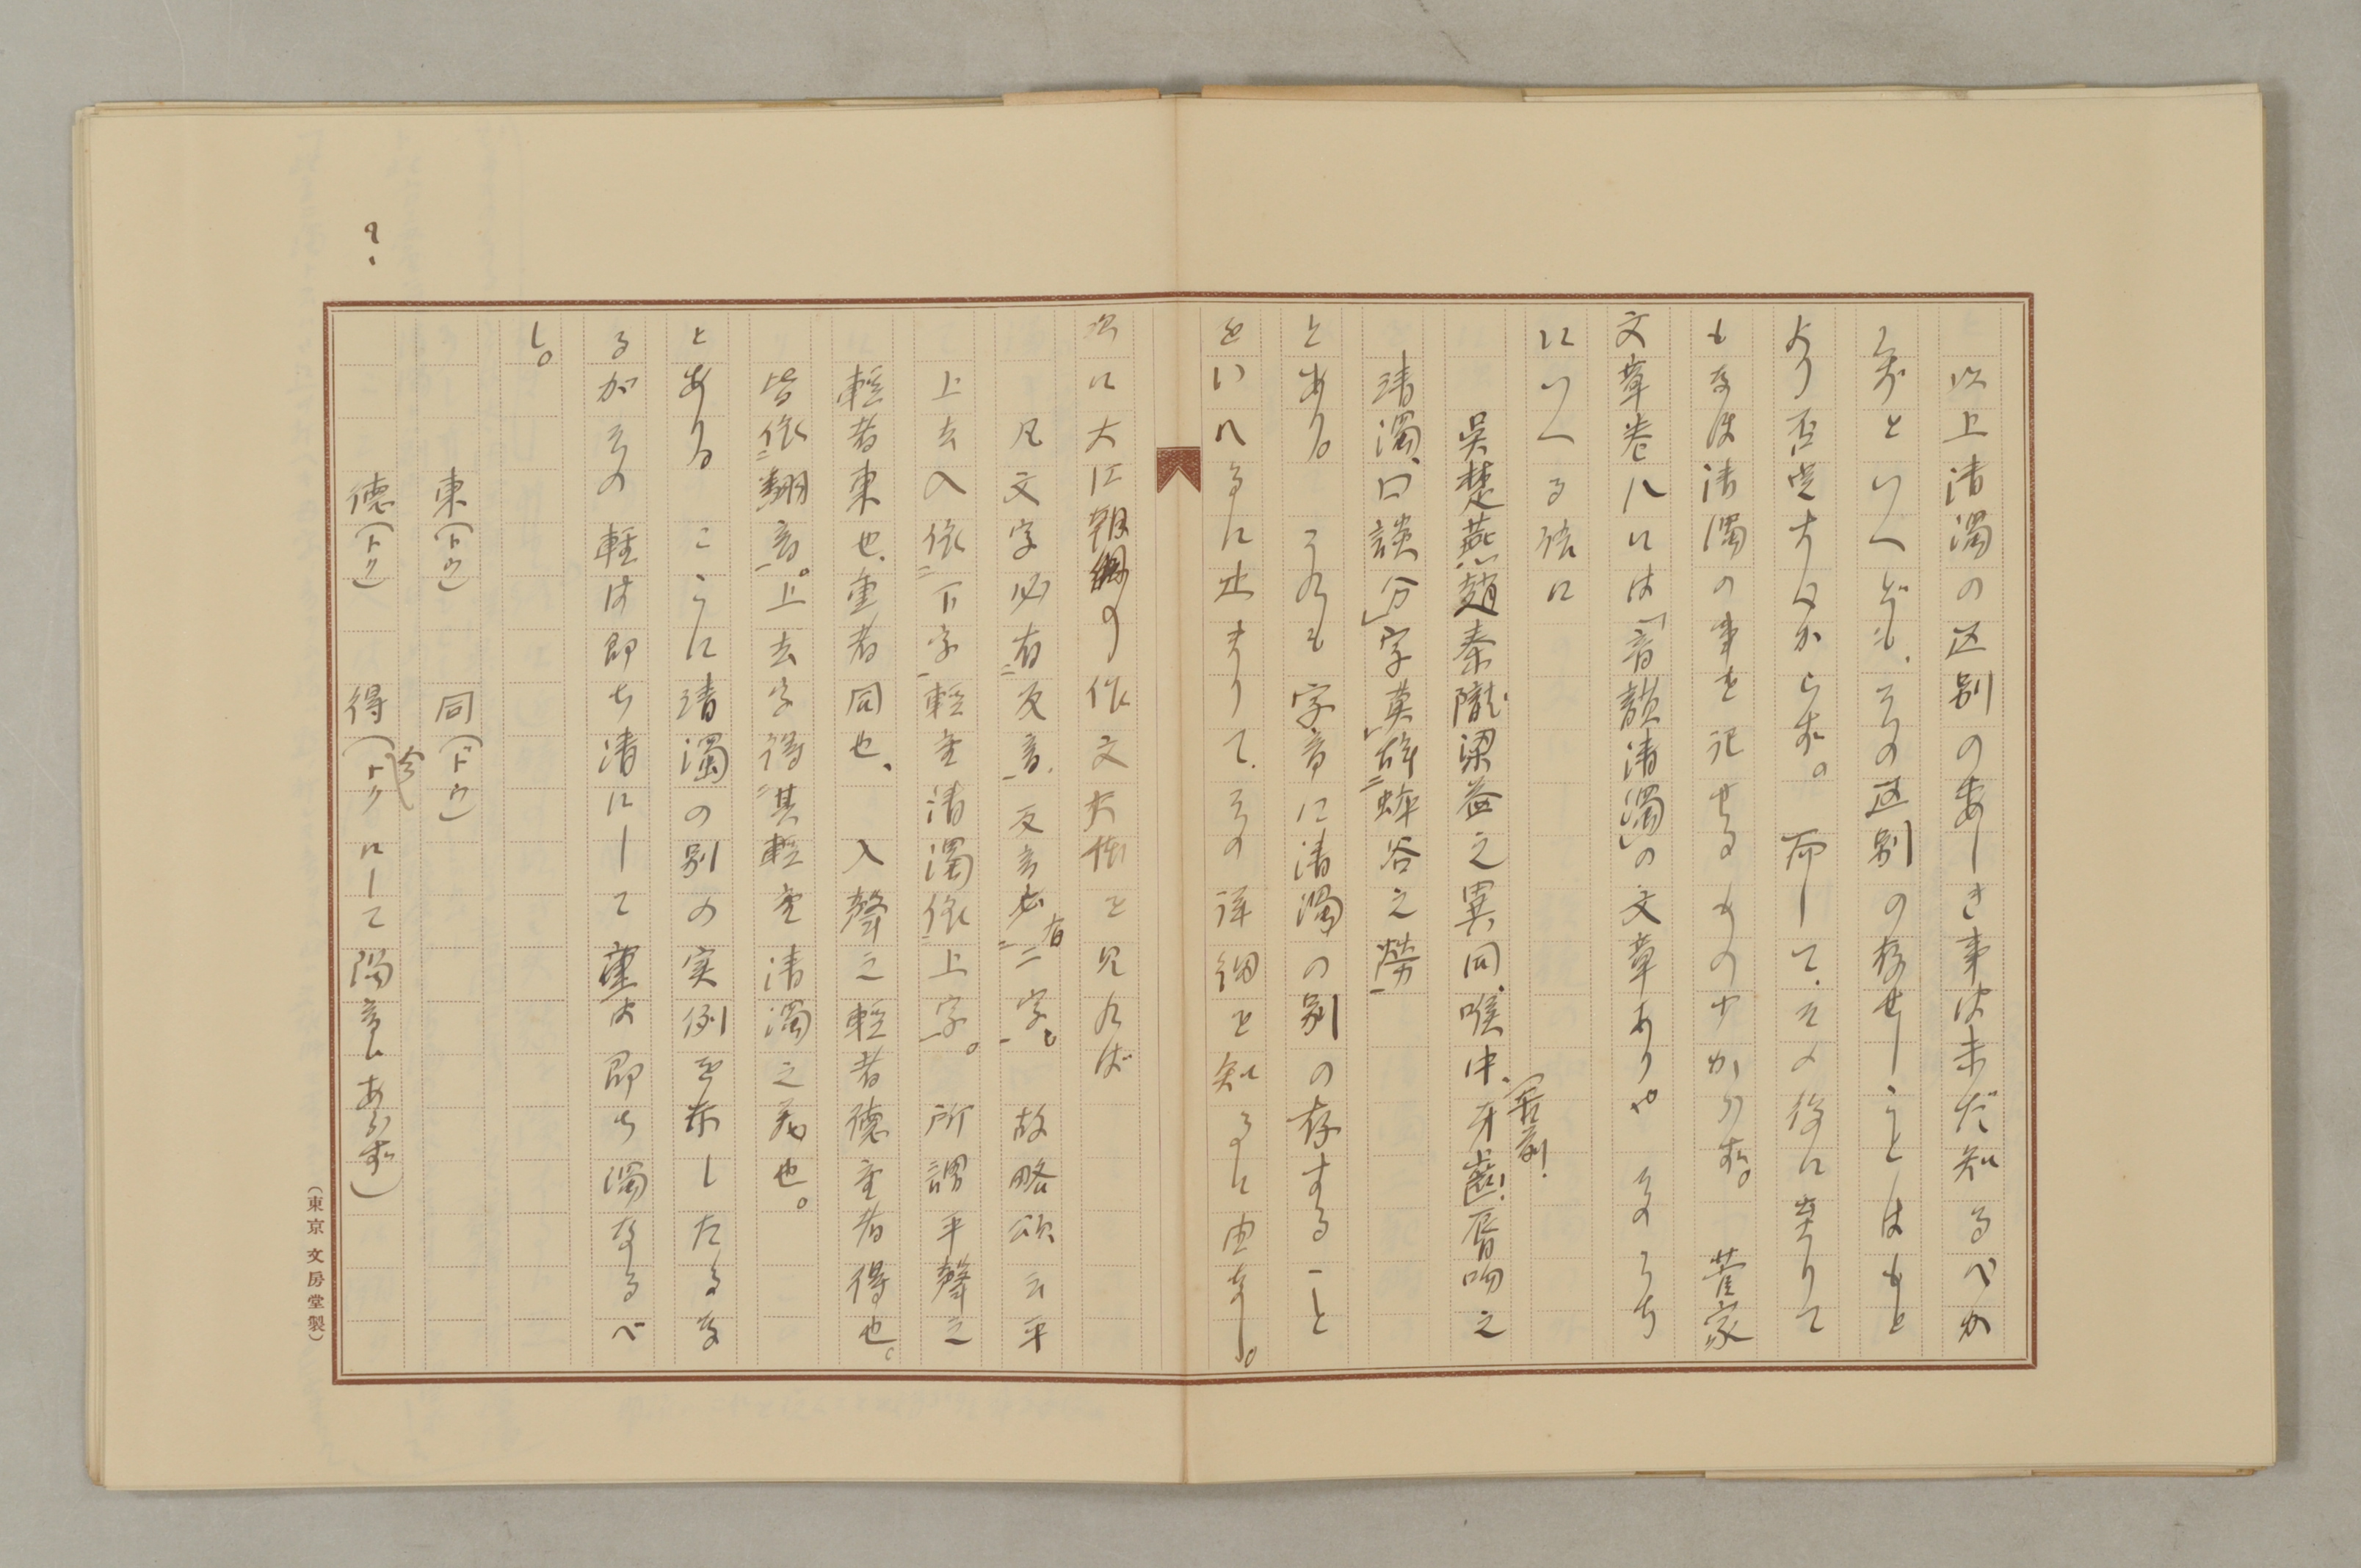 以上清濁の区別のあしき事は未だ知るべか
らずといへども、その区別の存せしことはもと
より否定すべからず。而して、それ後に至りて
もなほ清濁の事を記せるもの少からず。菅家
文草巻八には「音韻清濁」の文章あり。そのうち
にいへる語に
呉楚燕趙秦隴梁益之異同、喉中、牙齒、唇吻之
(舌
清濁、曰談「分」字「莫」辞蜂谷之労
とあり。これも字音に清濁の別の存すること
をいへるに止まりて、その詳細を知るに由なし。
次に大江朝綱の作文大体を見れば
凡文字必有反音、反音必有二字。故略頌云平
上去入依下字軽重清濁依上字。所謂平聲之
軽者東也、重者同也、入聲之軽者德重者得也。
皆依翻音。上去字得其軽重清濁之義也。
とあり。こゝに清濁の別の実例を示したるな
るがその軽は即ち清にして重は即ち濁なるべ
し。
東(トウ) 同(ドウ)
德(トク) 得(トクにして濁音にあらず)
今
?
(東京 文房堂製)